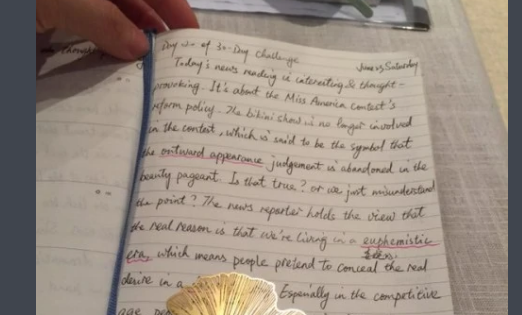 Day of 30-Day Challenge
June 23 Saturday
Today's news reading is interesting & thought-
provoking. It's about the Miss America contest's
reform policy. The bikini show is no longer involved
in the contest, which is said to be the symbol that
the outward appearance judgement is abandoned in the
beauty pageant. Is that true? or we just misunderstand
the point? The news reporter holds the view that
the real reason is that we're living in a euphemistic
era, which means people pretend to conceal the real
desire in a Especially in the competitive
age